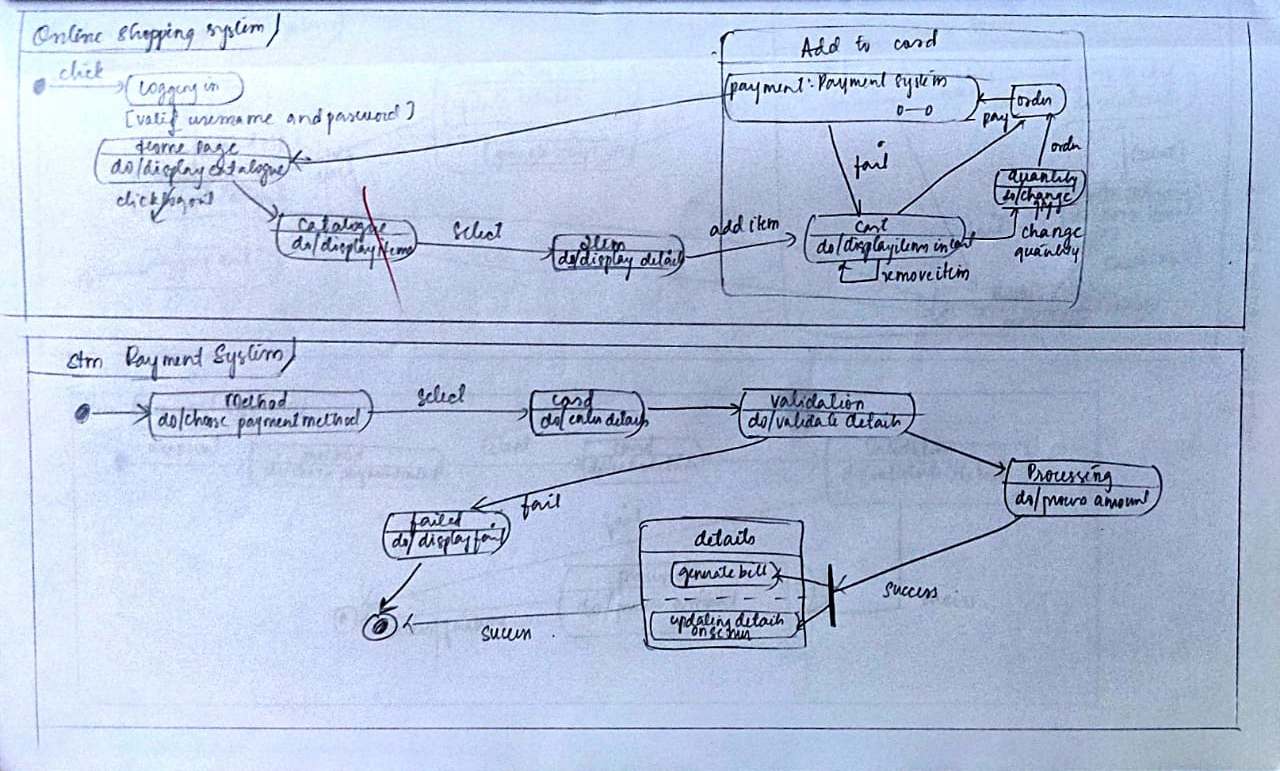 Online Shopping system
click
Logging in
[valid username and password]
Home page
do/display catalogue
click logout
Catalogue
do/display items
Select
Item
do/display details
add item
Add to card
payment: Payment system
o—o
order
pay
fail
order
quantity
do/change
Cart
do/display items in cart
change
quantity
remove item
Stm Payment System
Method
do/choose payment method
select
card
do/enter details
validation
do/validate details
Processing
do/process amount
fail
failed
do/display fail
details
generate bill
updating details
on screen
success
success